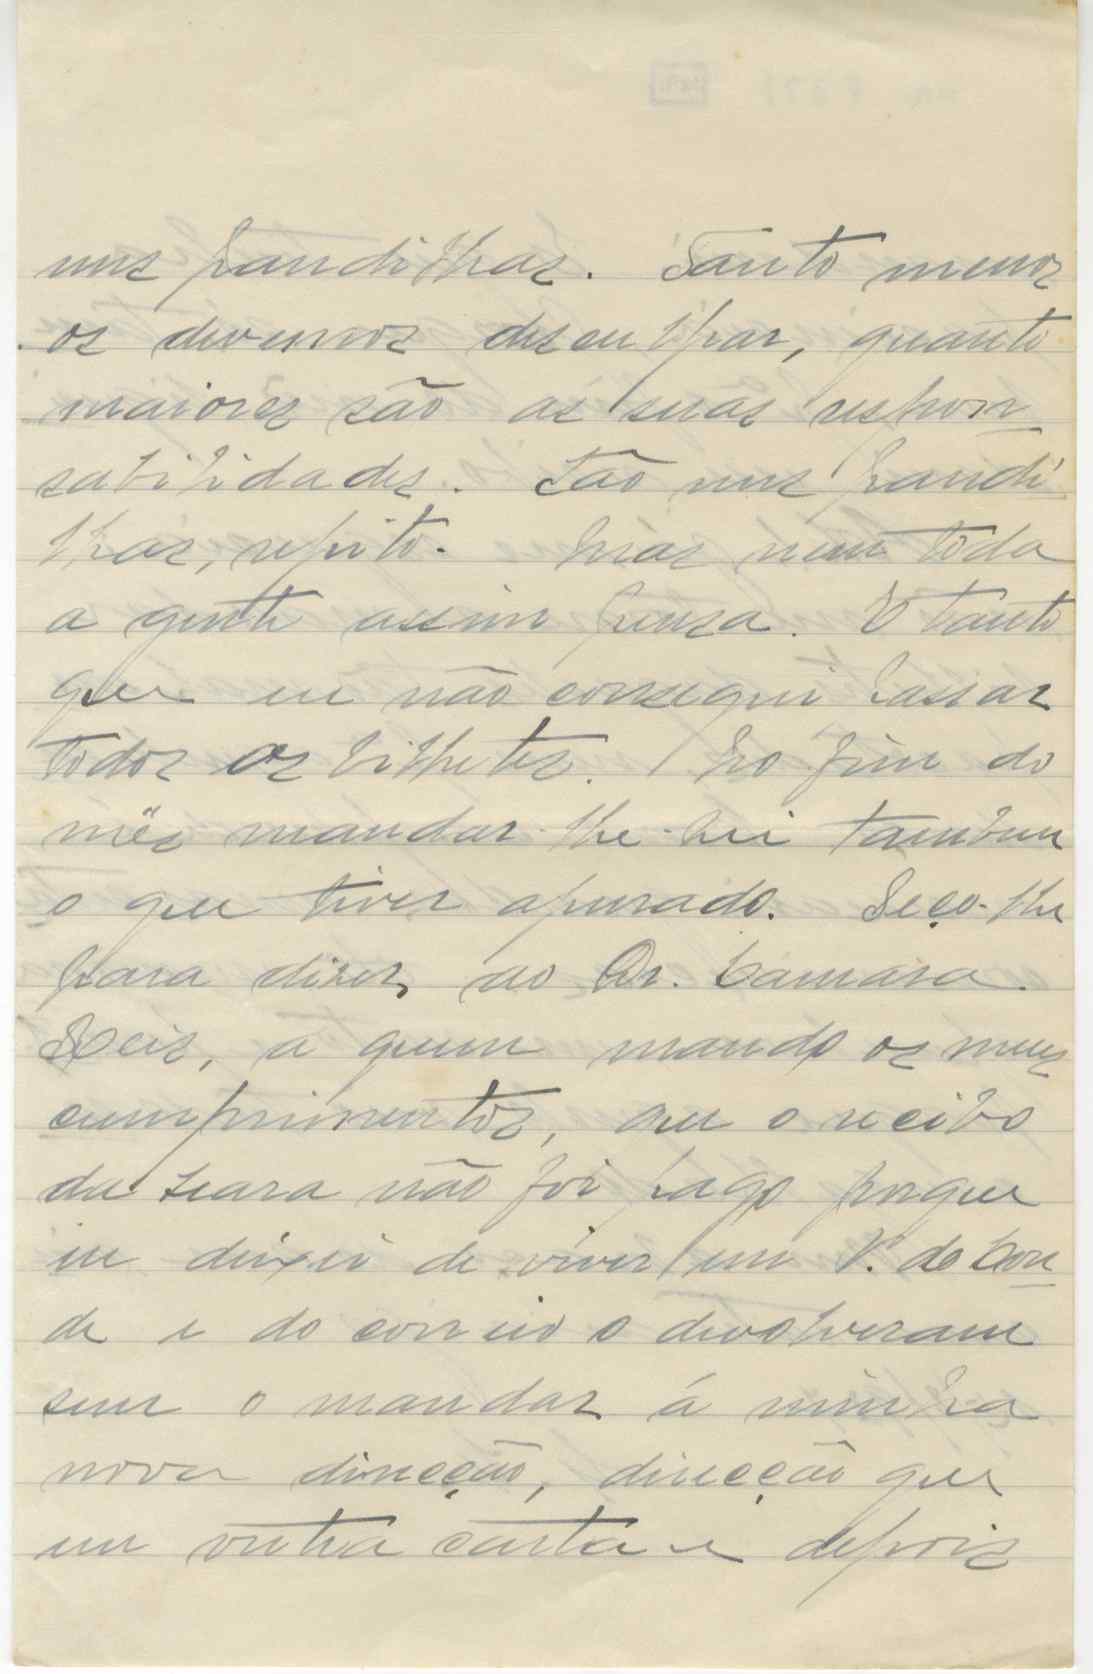 uns pandilhas. Tanto menos
os devemos desculpar, quanto
maiores são as suas respon-
sabilidades. São uns pandi-
lhas, repito. Mas nem toda
a gente assim pensa. E tanto
que eu não consegui passar
todos os bilhetes. No fim do
mês mandar-lhe-hei tambem
o que tiver apurado. Peço-lhe
para dizer, ao Dr. Camara
Reis, a quem mando os meus
cumprimentos, que o recibo
da Seara não foi pago porque
eu deixei de viver em V. do Con-
de e do correio o devolveram
sem o mandar á minha
nova direcção, direcção que
em outra carta e depois